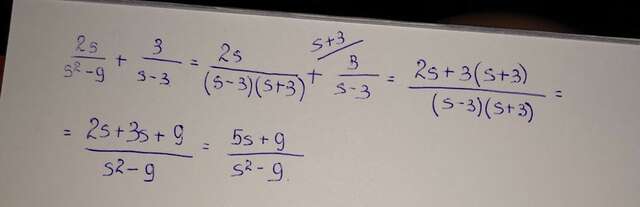 2s/(s²-9) + 3/(s-3) = 2s/((s-3)(s+3)) + s+3/ 3/(s-3) = (2s+3(s+3))/((s-3)(s+3)) =
= (2s+3s+9)/(s²-9) = (5s+9)/(s²-9)